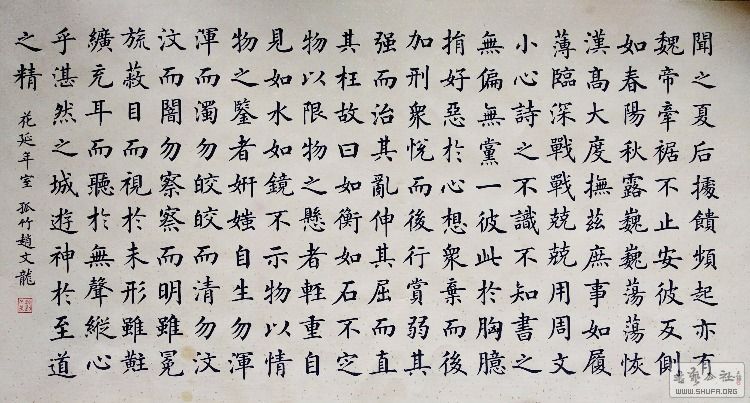 聞之夏后據饋頻起亦有
魏帝牽裾不止安彼反側
如春陽秋露巍巍蕩蕩恢
漢高大度撫茲庶事如履
薄臨深戰戰兢兢用周文
小心詩之不識不知書之
無偏無黨一彼此於胸臆
捐好惡於心想衆棄而後
加刑衆悅而後行賞弱其
强而治其亂伸其屈而直
其枉故曰如衡如石不定
物以限物之懸者輕重自
見如水如鏡不示物以情
物之鑒者妍媸自生勿渾
渾而濁勿皎皎而清勿汶
汶而闇勿察察而明雖冕
旒蔽目而視於未形雖黈
纊充耳而聽於無聲縱心
乎湛然之城遊神於至道
之精
花延年室 孤竹趙文龍
WWW.SHUFA.ORG